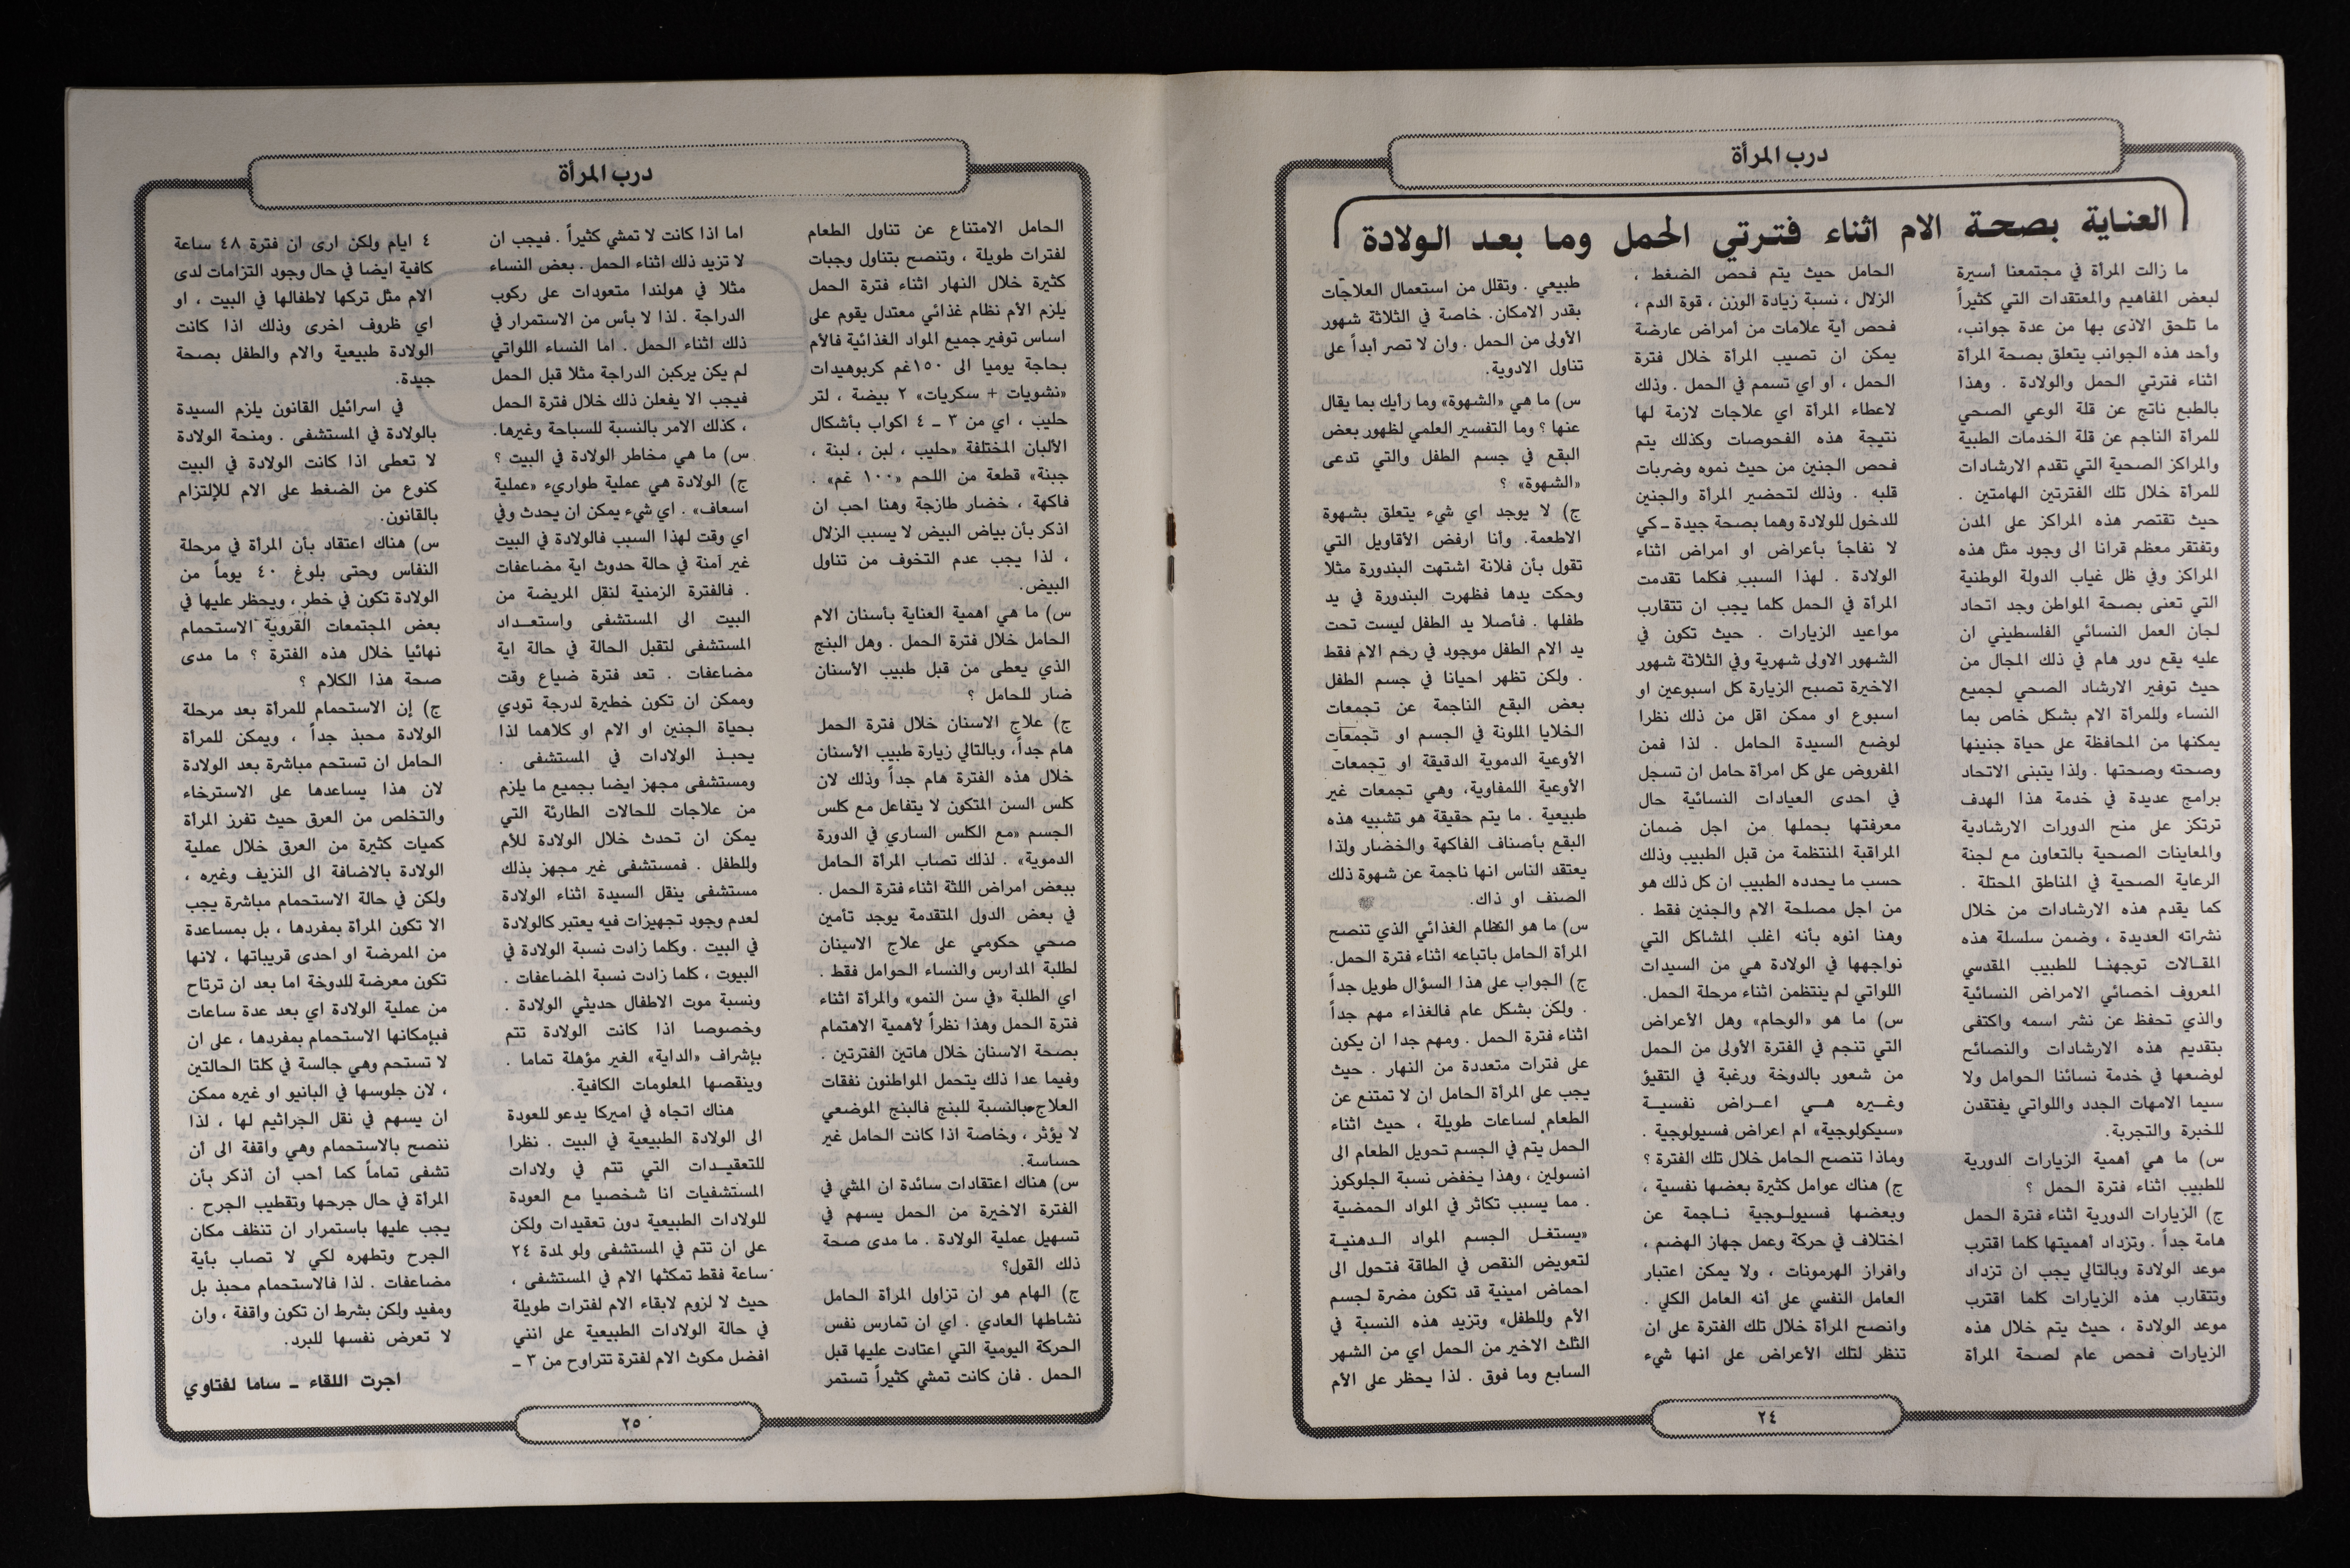 درب المرأة
العناية بصحة الام اثناء فترتي الحمل وما بعد الولادة
ما زالت المرأة في مجتمعنا أسيرة
لبعض المفاهيم والمعتقدات التي كثيراً
ما تلحق الاذى بها من عدة جوانب،
وأحد هذه الجوانب يتعلق بصحة المرأة
اثناء فترتي الحمل والولادة . وهذا
بالطبع ناتج عن قلة الوعي الصحي
للمرأة الناجم عن قلة الخدمات الطبية
والمراكز الصحية التي تقدم الارشادات
للمرأة خلال تلك الفترتين الهامتين .
حيث تقتصر هذه المراكز على المدن
وتفتقر معظم قرانا الى وجود مثل هذه
المراكز وفي ظل غياب الدولة الوطنية
التي تعنى بصحة المواطن وجد اتحاد
لجان العمل النسائي الفلسطيني ان
عليه يقع دور هام في ذلك المجال من
حيث توفير الارشاد الصحي لجميع
النساء وللمرأة الام بشكل خاص بما
يمكنها من المحافظة على حياة جنينها
وصحته وصحتها . ولذا يتبنى الاتحاد
برامج عديدة في خدمة هذا الهدف
ترتكز على منح الدورات الارشادية
والمعاينات الصحية بالتعاون مع لجنة
الرعاية الصحية في المناطق المحتلة .
كما يقدم هذه الارشادات من خلال
نشراته العديدة ، وضمن سلسلة هذه
المقالات توجهنا للطبيب المقدسي
المعروف اخصائي الامراض النسائية
والذي تحفظ عن نشر اسمه واكتفى
بتقديم هذه الارشادات والنصائح
لوضعها في خدمة نسائنا الحوامل ولا
سيما الامهات الجدد واللواتي يفتقدن
للخبرة والتجربة.
س) ما هي أهمية الزيارات الدورية
للطبيب اثناء فترة الحمل ؟
ج) الزيارات الدورية اثناء فترة الحمل
هامة جداً . وتزداد أهميتها كلما اقترب
موعد الولادة وبالتالي يجب ان تزداد
وتتقارب هذه الزيارات كلما اقترب
موعد الولادة ، حيث يتم خلال هذه
الزيارات فحص عام لصحة المرأة
الحامل حيث يتم فحص الضغط ،
الزلال ، نسبة زيادة الوزن ، قوة الدم ،
فحص أية علامات من امراض عارضة
يمكن ان تصيب المرأة خلال فترة
الحمل ، او اي تسمم في الحمل . وذلك
لاعطاء المرأة اي علاجات لازمة لها
نتيجة هذه الفحوصات وكذلك يتم
فحص الجنين من حيث نموه وضربات
قلبه . وذلك لتحضير المرأة والجنين
للدخول للولادة وهما بصحة جيدة ـ كي
لا نفاجأ بأعراض او امراض اثناء
الولادة . لهذا السبب فكلما تقدمت
المرأة في الحمل كلما يجب ان تتقارب
مواعيد الزيارات . حيث تكون في
الشهور الاولى شهرية وفي الثلاثة شهور
الاخيرة تصبح الزيارة كل اسبوعين او
اسبوع او ممكن اقل من ذلك نظرا
لوضع السيدة الحامل . لذا فمن
المفروض على كل امرأة حامل ان تسجل
في احدى العيادات النسائية حال
معرفتها بحملها من اجل ضمان
المراقبة المنتظمة من قبل الطبيب وذلك
حسب ما يحدده الطبيب ان كل ذلك هو
من اجل مصلحة الام والجنين فقط .
وهنا انوه بأنه اغلب المشاكل التي
نواجهها في الولادة هي من السيدات
اللواتي لم ينتظمن اثناء مرحلة الحمل.
س) ما هو «الوحام» وهل الأعراض
التي تنجم في الفترة الأولى من الحمل
من شعور بالدوخة ورغبة في التقيؤ
وغيره هي اعراض نفسية
«سيكولوجية» ام اعراض فسيولوجية .
وماذا تنصح الحامل خلال تلك الفترة ؟
ج) هناك عوامل كثيرة بعضها نفسية ،
وبعضها فسيولوجية ناجمة عن
اختلاف في حركة وعمل جهاز الهضم ،
وافراز الهرمونات ، ولا يمكن اعتبار
العامل النفسي على أنه العامل الكلي .
وانصح المرأة خلال تلك الفترة على ان
تنظر لتلك الأعراض على انها شيء
طبيعي . وتقلل من استعمال العلاجات
بقدر الامكان. خاصة في الثلاثة شهور
الأولى من الحمل . وان لا تصر أبداً على
تناول الادوية.
س) ما هي «الشهوة» وما رأيك بما يقال
عنها ؟ وما التفسير العلمي لظهور بعض
البقع في جسم الطفل والتي تدعى
«الشهوة» ؟
ج) لا يوجد اي شيء يتعلق بشهوة
الاطعمة. وأنا ارفض الأقاويل التي
تقول بأن فلانة اشتهت البندورة مثلا
وحكت يدها فظهرت البندورة في يد
طفلها . فأصلا يد الطفل ليست تحت
يد الام الطفل موجود في رحم الام فقط
. ولكن تظهر احيانا في جسم الطفل
بعض البقع الناجمة عن تجمعات
الخلايا الملونة في الجسم او تجمعات
الأوعية الدموية الدقيقة او تجمعات
الأوعية اللمفاوية، وهي تجمعات غير
طبيعية . ما يتم حقيقة هو تشبيه هذه
البقع بأصناف الفاكهة والخضار ولذا
يعتقد الناس انها ناجمة عن شهوة ذلك
الصنف او ذاك.
س) ما هو النظام الغذائي الذي تنصح
المرأة الحامل باتباعه اثناء فترة الحمل.
ج) الجواب على هذا السؤال طويل جداً
. ولكن بشكل عام فالغذاء مهم جداً
اثناء فترة الحمل . ومهم جدا ان يكون
على فترات متعددة من النهار . حيث
يجب على المرأة الحامل ان لا تمتنع عن
الطعام لساعات طويلة ، حيث اثناء
الحمل يتم في الجسم تحويل الطعام الى
انسولين ، وهذا يخفض نسبة الجلوكوز
. مما يسبب تكاثر في المواد الحمضية
«يستغل الجسم المواد الدهنية
لتعويض النقص في الطاقة فتحول الى
احماض امينية قد تكون مضرة لجسم
الأم وللطفل» وتزيد هذه النسبة في
الثلث الاخير من الحمل اي من الشهر
السابع وما فوق . لذا يحظر على الأم
٢٤
درب المرأة
الحامل الامتناع عن تناول الطعام
لفترات طويلة ، وتنصح بتناول وجبات
كثيرة خلال النهار اثناء فترة الحمل
يلزم الأم نظام غذائي معتدل يقوم على
اساس توفير جميع المواد الغذائية فالأم
بحاجة يوميا الى ١٥٠غم كربوهيدات
«نشويات + سكريات» ٢ بيضة ، لتر
حليب ، اي من ٣ ـ ٤ اكواب بأشكال
الألبان المختلفة «حليب ، لبن ، لبنة ،
جبنة» قطعة من اللحم «١٠٠ غم» .
فاكهة ، خضار طازجة وهنا احب ان
اذكر بأن بياض البيض لا يسبب الزلال
، لذا يجب عدم التخوف من تناول
البيض.
س) ما هي اهمية العناية بأسنان الام
الحامل خلال فترة الحمل . وهل البنج
الذي يعطى من قبل طبيب الأسنان
ضار للحامل ؟
ج) علاج الاسنان خلال فترة الحمل
هام جداً، وبالتالي زيارة طبيب الأسنان
خلال هذه الفترة هام جداً وذلك لان
كلس السن المتكون لا يتفاعل مع كلس
الجسم «مع الكلس الساري في الدورة
الدموية» . لذلك تصاب المرأة الحامل
ببعض امراض اللثة اثناء فترة الحمل .
في بعض الدول المتقدمة يوجد تأمين
صحي حكومي على علاج الاسنان
لطلبة المدارس والنساء الحوامل فقط .
اي الطلبة «في سن النمو» والمرأة اثناء
فترة الحمل وهذا نظراً لأهمية الاهتمام
بصحة الاسنان خلال هاتين الفترتين .
وفيما عدا ذلك يتحمل المواطنون نفقات
العلاج بالنسبة للبنج فالبنج الموضعي
لا يؤثر ، وخاصة اذا كانت الحامل غير
حساسة.
س) هناك اعتقادات سائدة ان المشي في
الفترة الاخيرة من الحمل يسهم في
تسهيل عملية الولادة . ما مدى صحة
ذلك القول؟
ج) الهام هو ان تزاول المرأة الحامل
نشاطها العادي . اي ان تمارس نفس
الحركة اليومية التي اعتادت عليها قبل
الحمل . فان كانت تمشي كثيراً تستمر
اما اذا كانت لا تمشي كثيراً . فيجب ان
لا تزيد ذلك اثناء الحمل . بعض النساء
مثلا في هولندا متعودات على ركوب
الدراجة . لذا لا بأس من الاستمرار في
ذلك اثناء الحمل . اما النساء اللواتي
لم يكن يركبن الدراجة مثلا قبل الحمل
فيجب الا يفعلن ذلك خلال فترة الحمل
، كذلك الامر بالنسبة للسباحة وغيرها.
س) ما هي مخاطر الولادة في البيت ؟
ج) الولادة هي عملية طواريء «عملية
اسعاف» . اي شيء يمكن ان يحدث وفي
اي وقت لهذا السبب فالولادة في البيت
غير آمنة في حالة حدوث اية مضاعفات
. فالفترة الزمنية لنقل المريضة من
البيت الى المستشفى واستعداد
المستشفى لتقبل الحالة في حالة اية
مضاعفات . تعد فترة ضياع وقت
وممكن ان تكون خطيرة لدرجة تودي
بحياة الجنين او الام او كلاهما لذا
يحبذ الولادات في المستشفى .
ومستشفى مجهز ايضا بجميع ما يلزم
من علاجات للحالات الطارئة التي
يمكن ان تحدث خلال الولادة للأم
وللطفل . فمستشفى غير مجهز بذلك
مستشفى ينقل السيدة اثناء الولادة
لعدم وجود تجهيزات فيه يعتبر كالولادة
في البيت . وكلما زادت نسبة الولادة في
البيوت ، كلما زادت نسبة المضاعفات .
ونسبة موت الاطفال حديثي الولادة .
وخصوصا اذا كانت الولادة تتم
بإشراف «الداية» الغير مؤهلة تماما .
وينقصها المعلومات الكافية.
هناك اتجاه في اميركا يدعو للعودة
الى الولادة الطبيعية في البيت . نظرا
للتعقيدات التي تتم في ولادات
المستشفيات انا شخصيا مع العودة
للولادات الطبيعية دون تعقيدات ولكن
على ان تتم في المستشفى ولو لمدة ٢٤
ساعة فقط تمكثها الام في المستشفى ،
حيث لا لزوم لابقاء الام لفترات طويلة
في حالة الولادات الطبيعية على انني
افضل مكوث الام لفترة تتراوح من ٣ ـ
٤ ايام ولكن ارى ان فترة ٤٨ ساعة
كافية ايضا في حال وجود التزامات لدى
الام مثل تركها لاطفالها في البيت ، او
اي ظروف اخرى وذلك اذا كانت
الولادة طبيعية والام والطفل بصحة
جيدة.
في اسرائيل القانون يلزم السيدة
بالولادة في المستشفى . ومنحة الولادة
لا تعطى اذا كانت الولادة في البيت
كنوع من الضغط على الام للإلتزام
بالقانون.
س) هناك اعتقاد بأن المرأة في مرحلة
النفاس وحتى بلوغ ٤٠ يوماً من
الولادة تكون في خطر ، ويحظر عليها في
بعض المجتمعات القروية الاستحمام
نهائيا خلال هذه الفترة ؟ ما مدى
صحة هذا الكلام ؟
ج) إن الاستحمام للمرأة بعد مرحلة
الولادة محبذ جداً ، ويمكن للمرأة
الحامل ان تستحم مباشرة بعد الولادة
لان هذا يساعدها على الاسترخاء
والتخلص من العرق حيث تفرز المرأة
كميات كثيرة من العرق خلال عملية
الولادة بالاضافة الى النزيف وغيره ،
ولكن في حالة الاستحمام مباشرة يجب
الا تكون المرأة بمفردها ، بل بمساعدة
من الممرضة او احدى قريباتها ، لانها
تكون معرضة للدوخة اما بعد ان ترتاح
من عملية الولادة اي بعد عدة ساعات
فبإمكانها الاستحمام بمفردها ، على ان
لا تستحم وهي جالسة في كلتا الحالتين
، لان جلوسها في البانيو او غيره ممكن
ان يسهم في نقل الجراثيم لها ، لذا
ننصح بالاستحمام وهي واقفة الى أن
تشفى تماماً كما أحب أن أذكر بأن
المرأة في حال جرحها وتقطيب الجرح .
يجب عليها باستمرار ان تنظف مكان
الجرح وتطهره لكي لا تصاب بأية
مضاعفات . لذا فالاستحمام محبذ بل
ومفيد ولكن بشرط ان تكون واقفة ، وان
لا تعرض نفسها للبرد.
اجرت اللقاء ـ ساما لفتاوي
٢٥